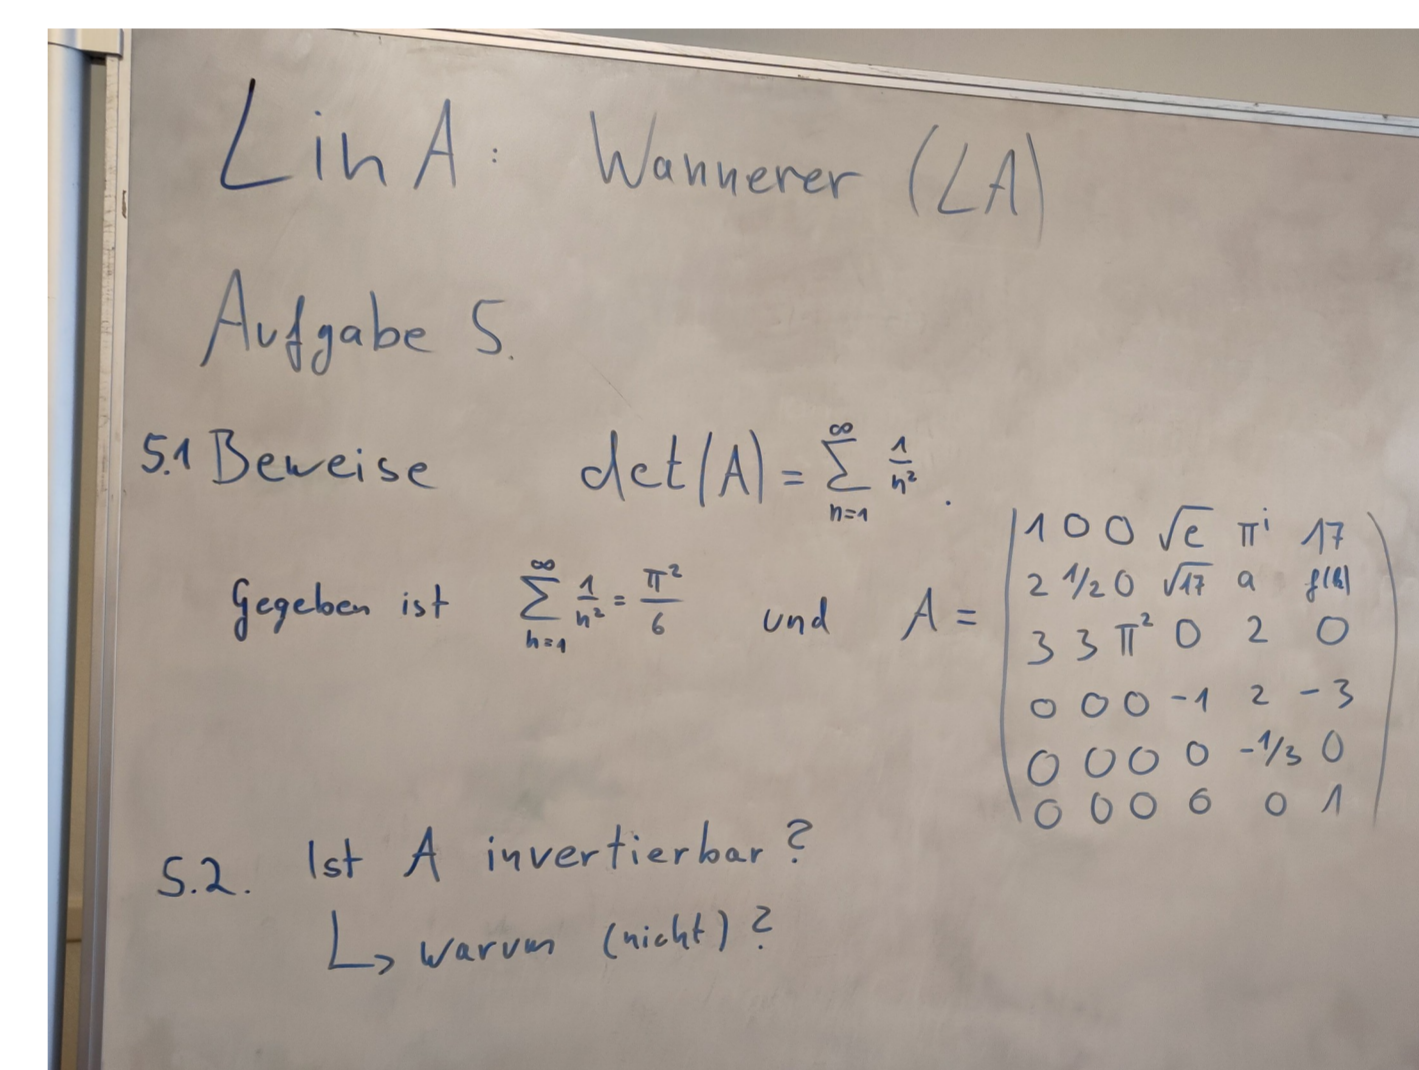 LinA: Wannerer (LA)
Aufgabe 5.
5.1 Beweise det(A) = ∑_{n=1}^{∞} 1/n².
Gegeben ist ∑_{n=1}^{∞} 1/n² = π²/6 und A =
1 0 0 √e πⁱ 17
2 1/2 0 √17 a f(h)
3 3 π² 0 2 0
0 0 0 -1 2 -3
0 0 0 0 -1/3 0
0 0 0 0 0 1
5.2. Ist A invertierbar?
↳ warum (nicht)?